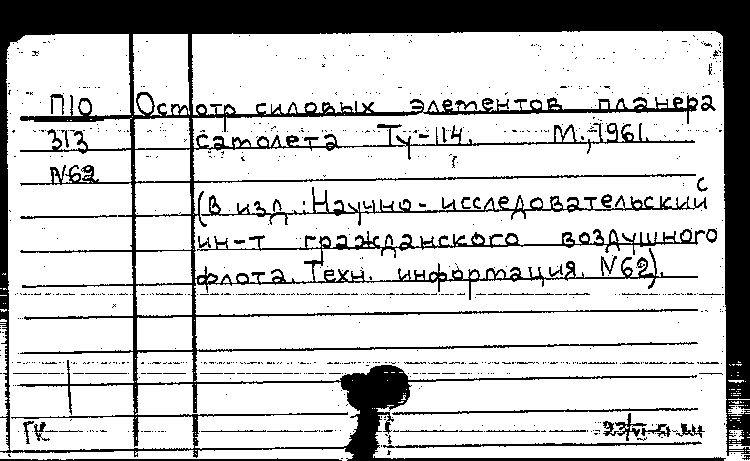 П10 Осмотр силовых элементов планера
313 самолета Ту-114. М., 1961.
N62
(в изд.: Научно-исследовательский
ин-т гражданского воздушного
флота. Техн. информация. N62).
ГК 23/VI